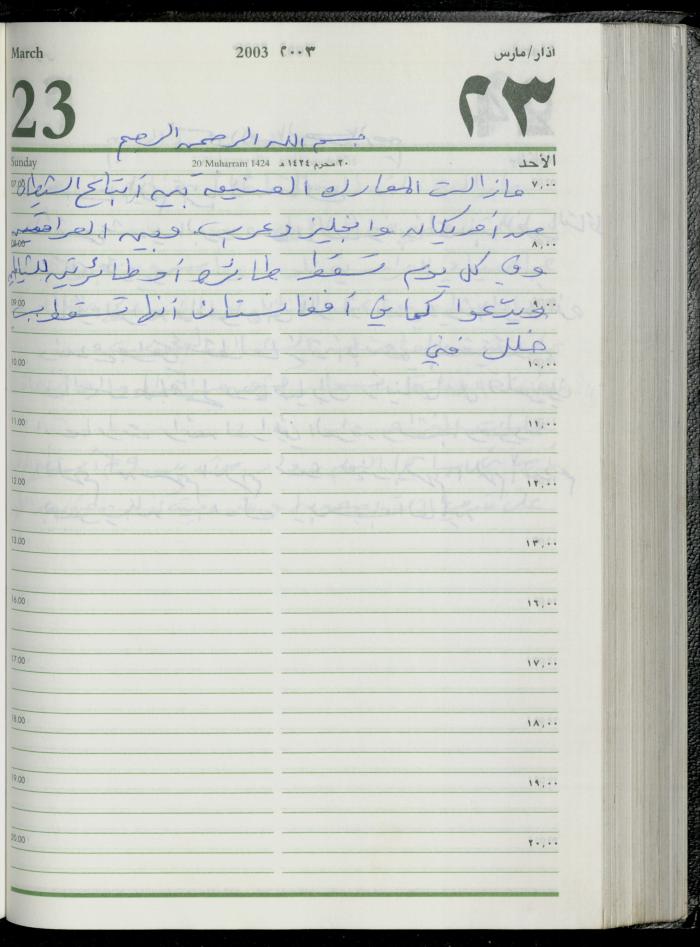 March 2003 ٢٠٠٣ اذار/مارس
23 ٢٣
بسم الله الرحمن الرحيم
Sunday 20 Muharram 1424 ٢٠ محرم ١٤٢٤ هـ الأحد
07.00 ٧,٠٠
مازالت المعارك العنيفة بين أتباع الشيطان
من أمريكان وانجليز وعرب وبين العراقيين
08.00 ٨,٠٠
وفي كل يوم تسقط طائرة أو طائرتين
09.00
ويدّعوا كما في أفغانستان أنها تسقط بـ
خلل فني
10.00 ١٠,٠٠
11.00 ١١,٠٠
12.00 ١٢,٠٠
13.00 ١٣,٠٠
16.00 ١٦,٠٠
17.00 ١٧,٠٠
18.00 ١٨,٠٠
19.00 ١٩,٠٠
20.00 ٢٠,٠٠